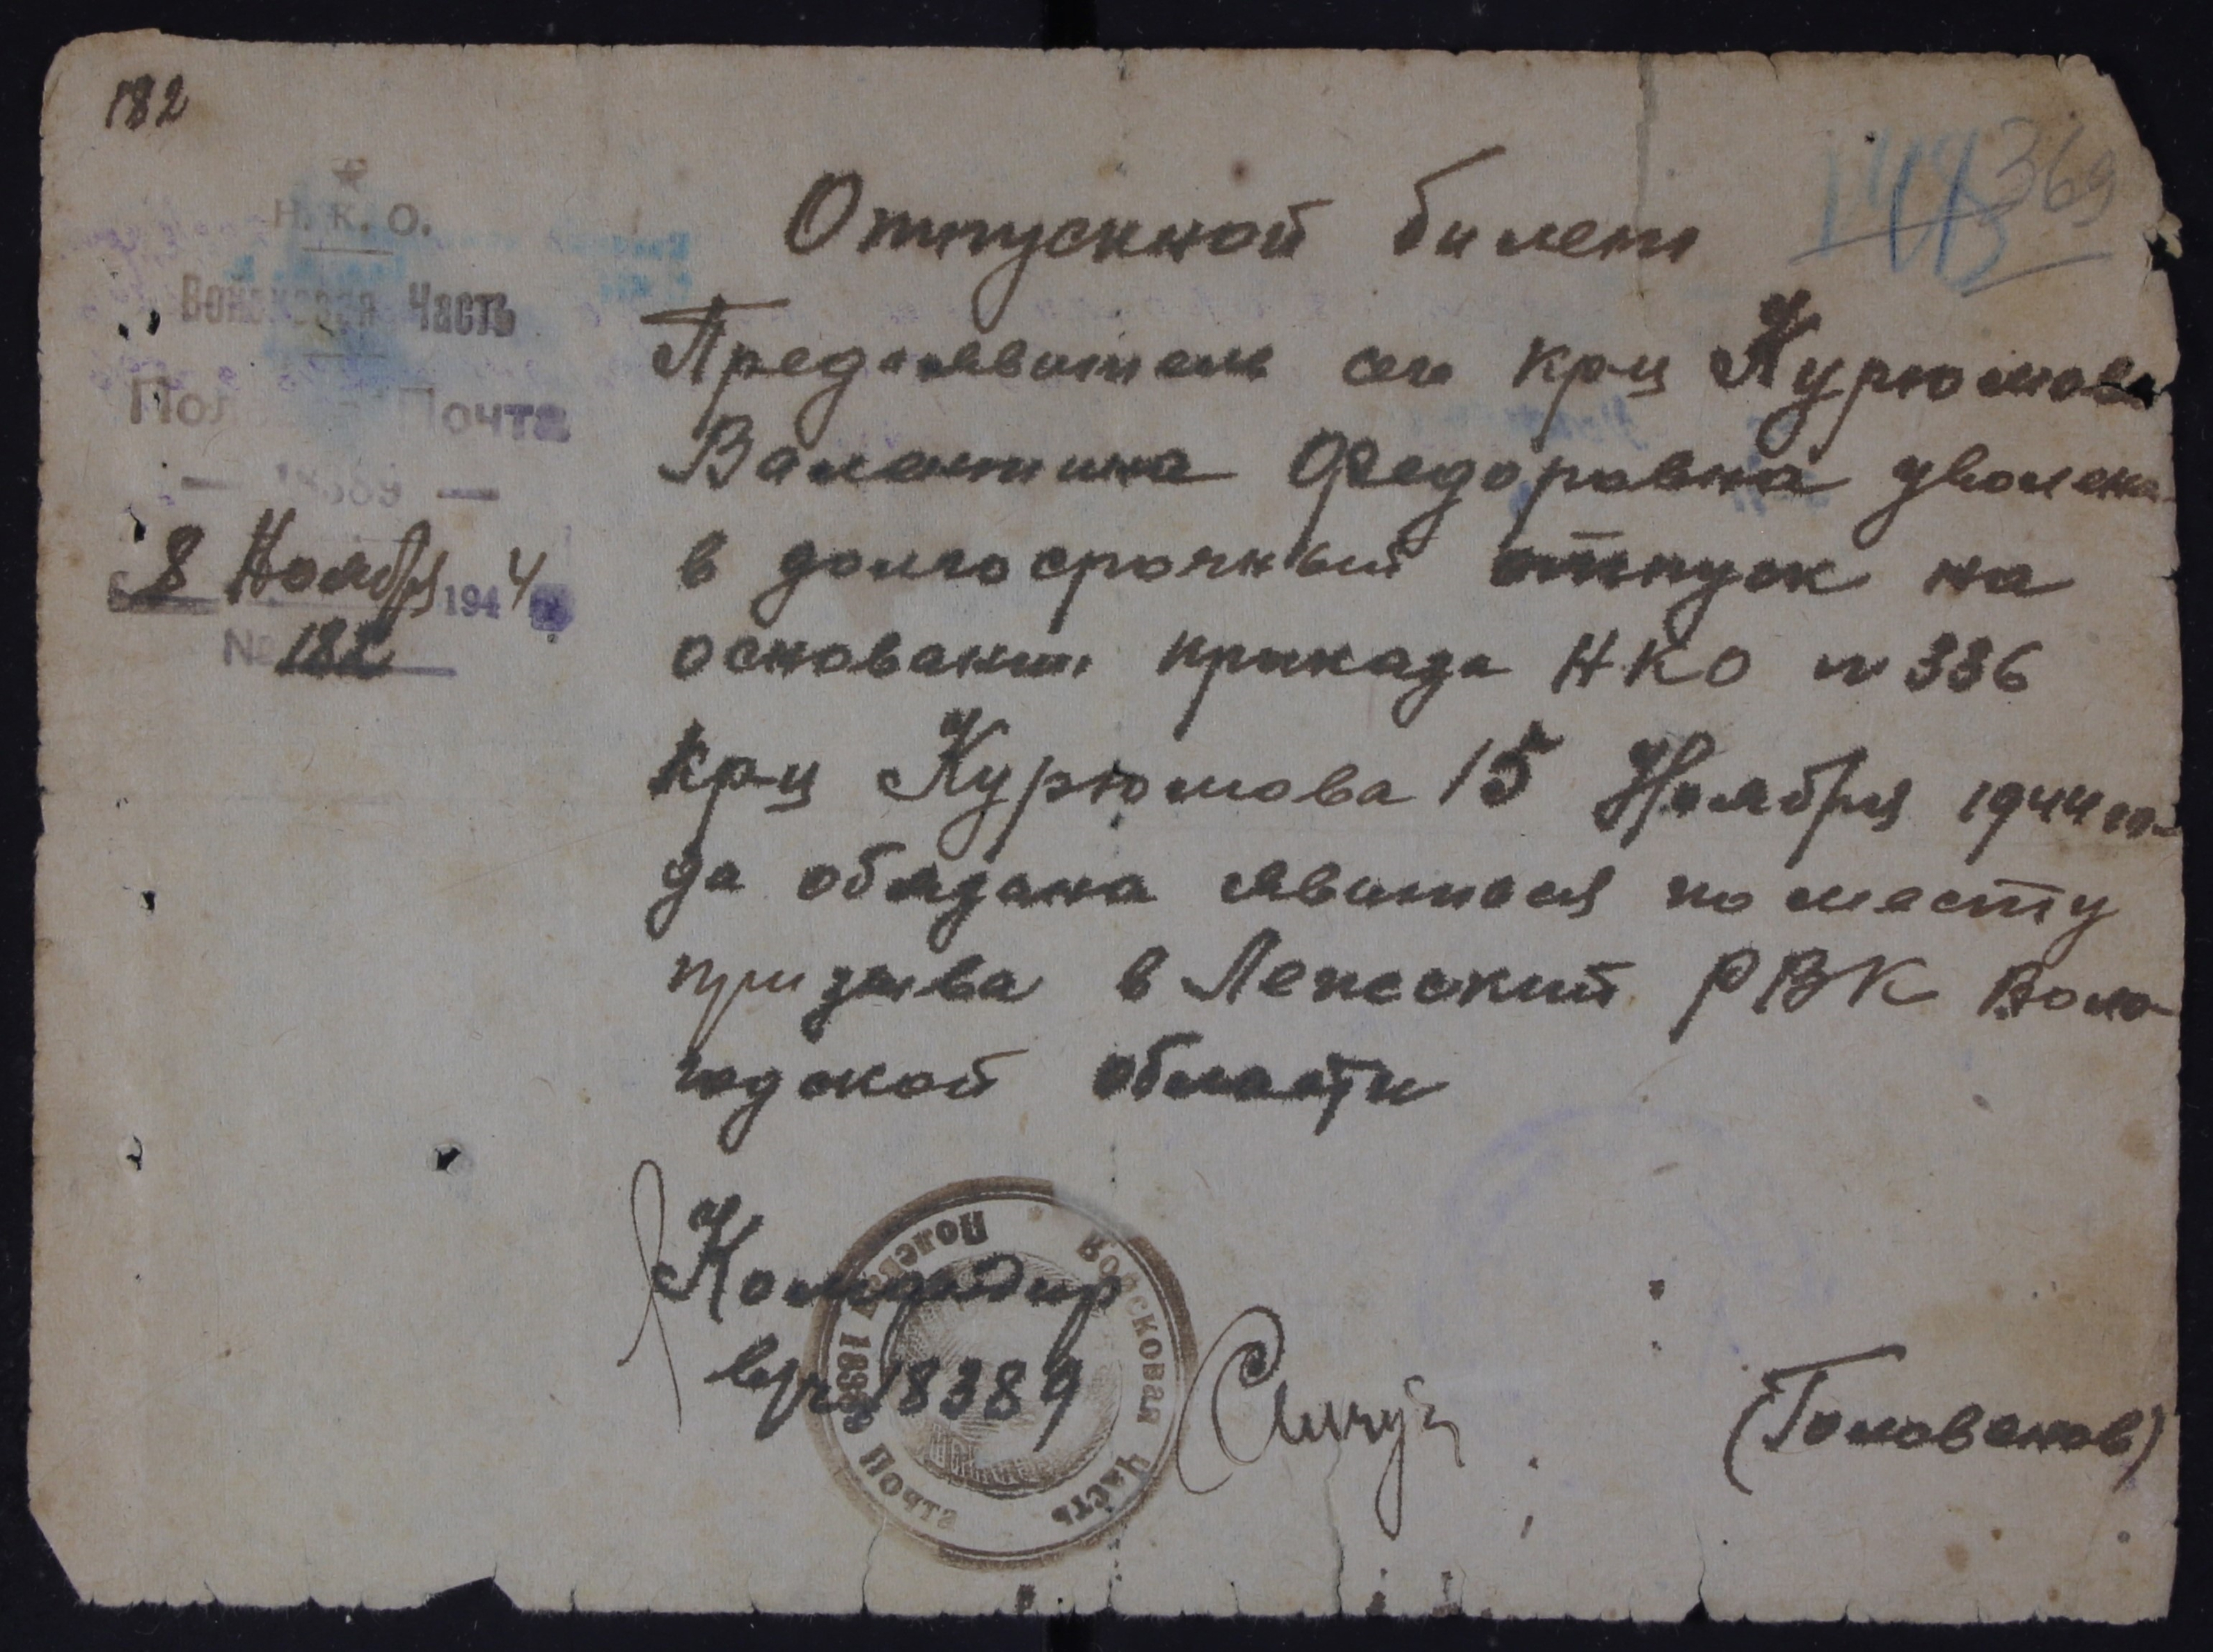 182
369
Н. К. О.
Войсковая Часть
Полевая Почта
— 18389 —
8 Ноября 1944
№ 182
Отпускной билет
Предъявитель сего кр-ц Курюмова
Валентина Федоровна уволена
в долгосрочный отпуск на
основании приказа НКО № 336
кр-ц Курюмова 15 Ноября 1944 го-
да обязана явиться по месту
призыва в Лежский РВК Воло-
годской области
Командир
в/ч 18389
(Голованов)
Войсковая Часть
Полевая Почта 18389